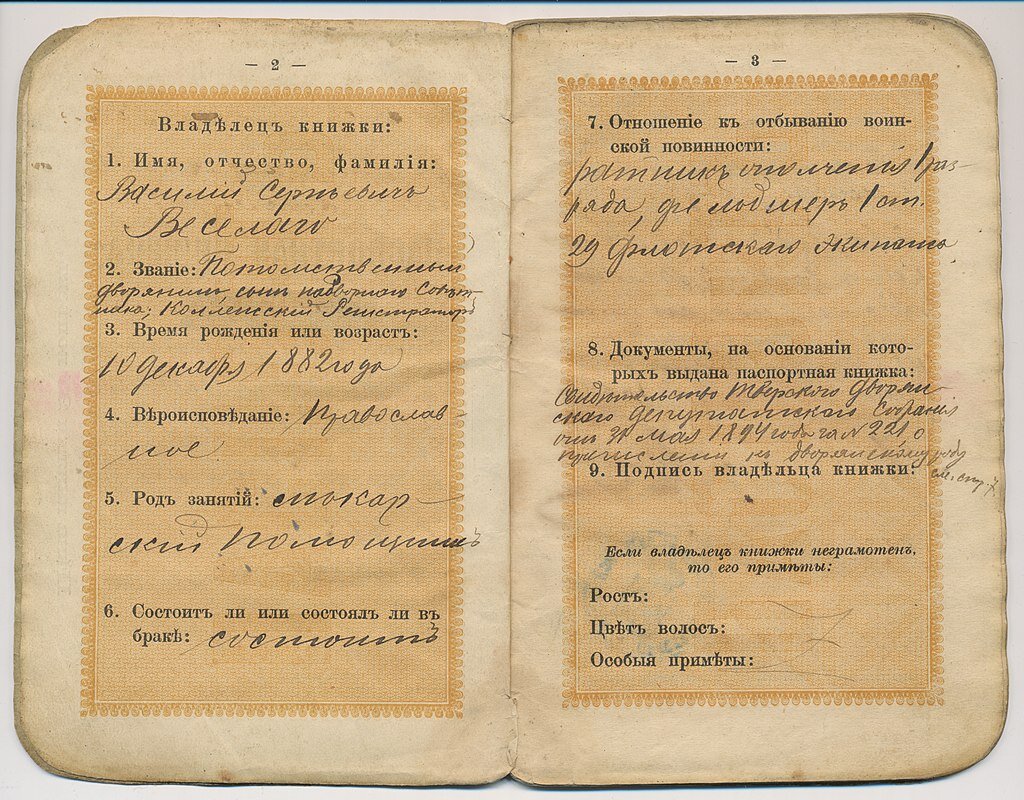 — 2 —
Владѣлецъ книжки:
1. Имя, отчество, фамилія:
Василій Сергѣевичъ
Веселаго
2. Званіе: Потомственный
дворянинъ, сынъ надворнаго Совѣт-
ника; Коллежскій Регистраторъ
3. Время рожденія или возрастъ:
10 декабря 1882 года
4. Вѣроисповѣданіе: Православ-
ное
5. Родъ занятій:
скій Помощникъ
6. Состоитъ ли или состоялъ ли въ
бракѣ: состоитъ
— 3 —
7. Отношеніе къ отбыванію воин-
ской повинности:
ратникъ ополченія 1 раз-
ряда, 1 ст.
29 флотскаго экипажа
8. Документы, на основаніи кото-
рыхъ выдана паспортная книжка:
Свидѣтельство Тверского Дворян-
скаго Депутатскаго Собранія
отъ 31 мая 1894 года за № 221 о
причисленіи къ дворянскому роду
см. стр. 7
9. Подпись владѣльца книжки:
Если владѣлецъ книжки неграмотенъ,
то его примѣты:
Ростъ:
Цвѣтъ волосъ:
Особыя примѣты: